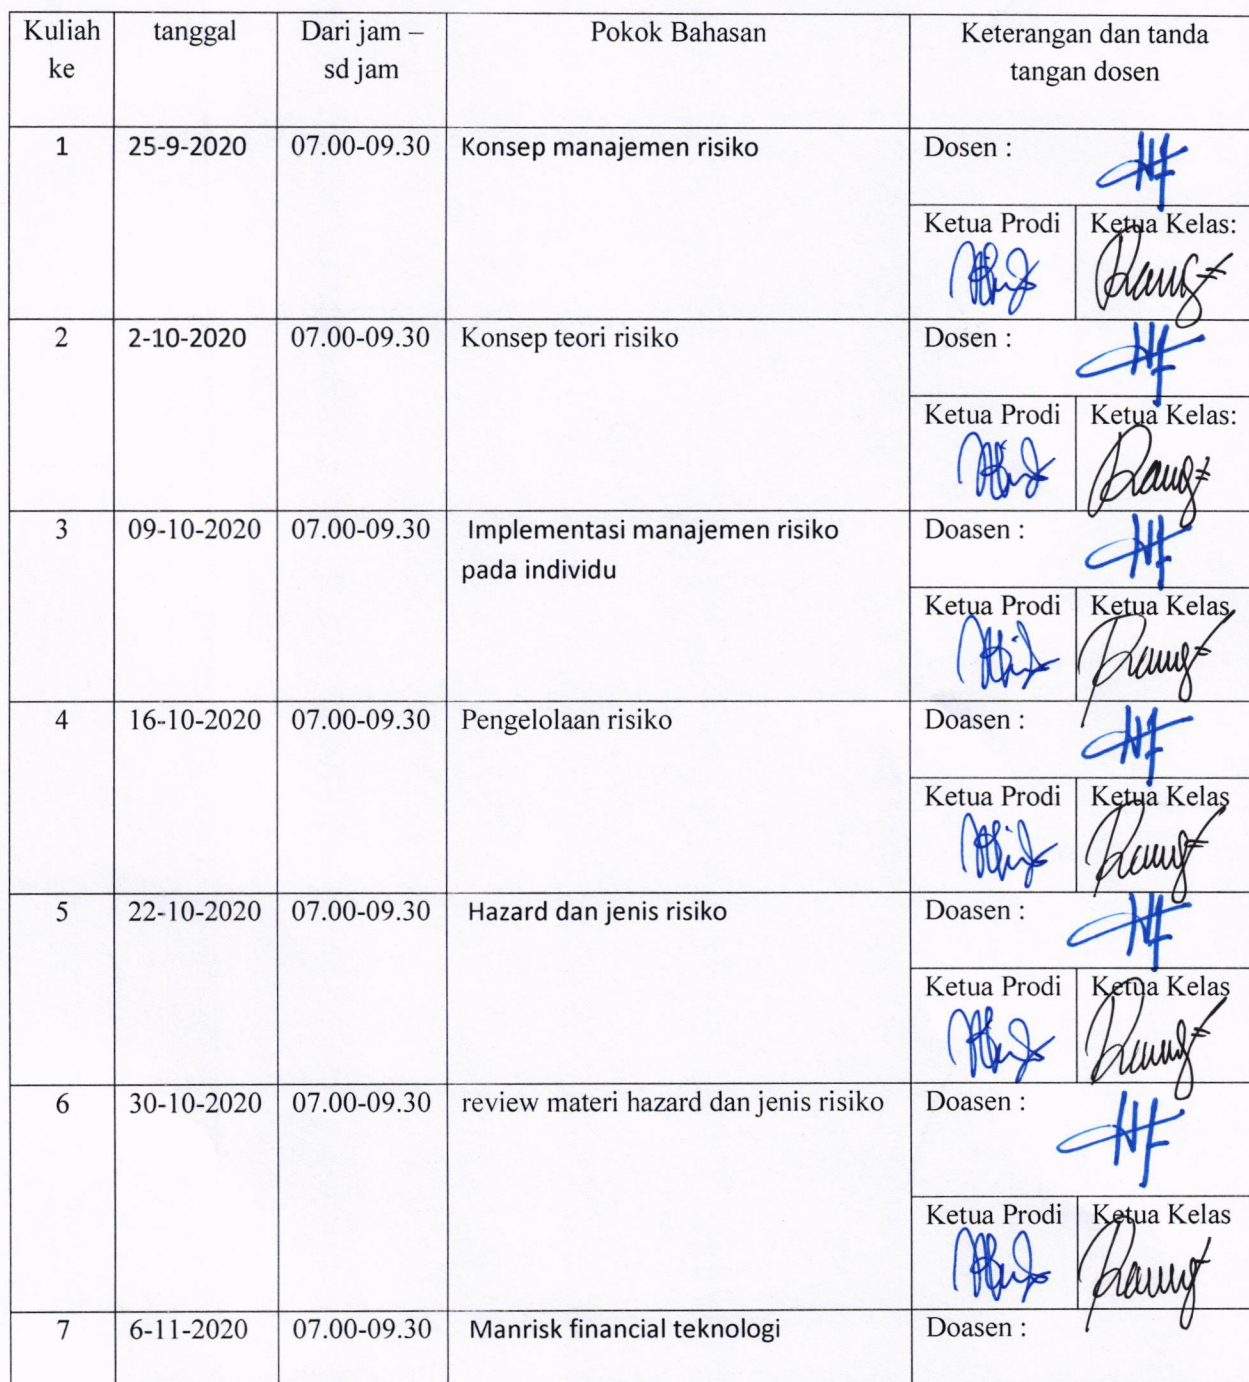 Kuliah ke
tanggal
Dari jam –
sd jam
Pokok Bahasan
Keterangan dan tanda
tangan dosen
1
25-9-2020
07.00-09.30
Konsep manajemen risiko
Dosen :
Ketua Prodi
Ketua Kelas:
2
2-10-2020
07.00-09.30
Konsep teori risiko
Dosen :
Ketua Prodi
Ketua Kelas:
3
09-10-2020
07.00-09.30
Implementasi manajemen risiko
pada individu
Doasen :
Ketua Prodi
Ketua Kelas
4
16-10-2020
07.00-09.30
Pengelolaan risiko
Doasen :
Ketua Prodi
Ketua Kelas
5
22-10-2020
07.00-09.30
Hazard dan jenis risiko
Doasen :
Ketua Prodi
Ketua Kelas
6
30-10-2020
07.00-09.30
review materi hazard dan jenis risiko
Doasen :
Ketua Prodi
Ketua Kelas
7
6-11-2020
07.00-09.30
Manrisk financial teknologi
Doasen :